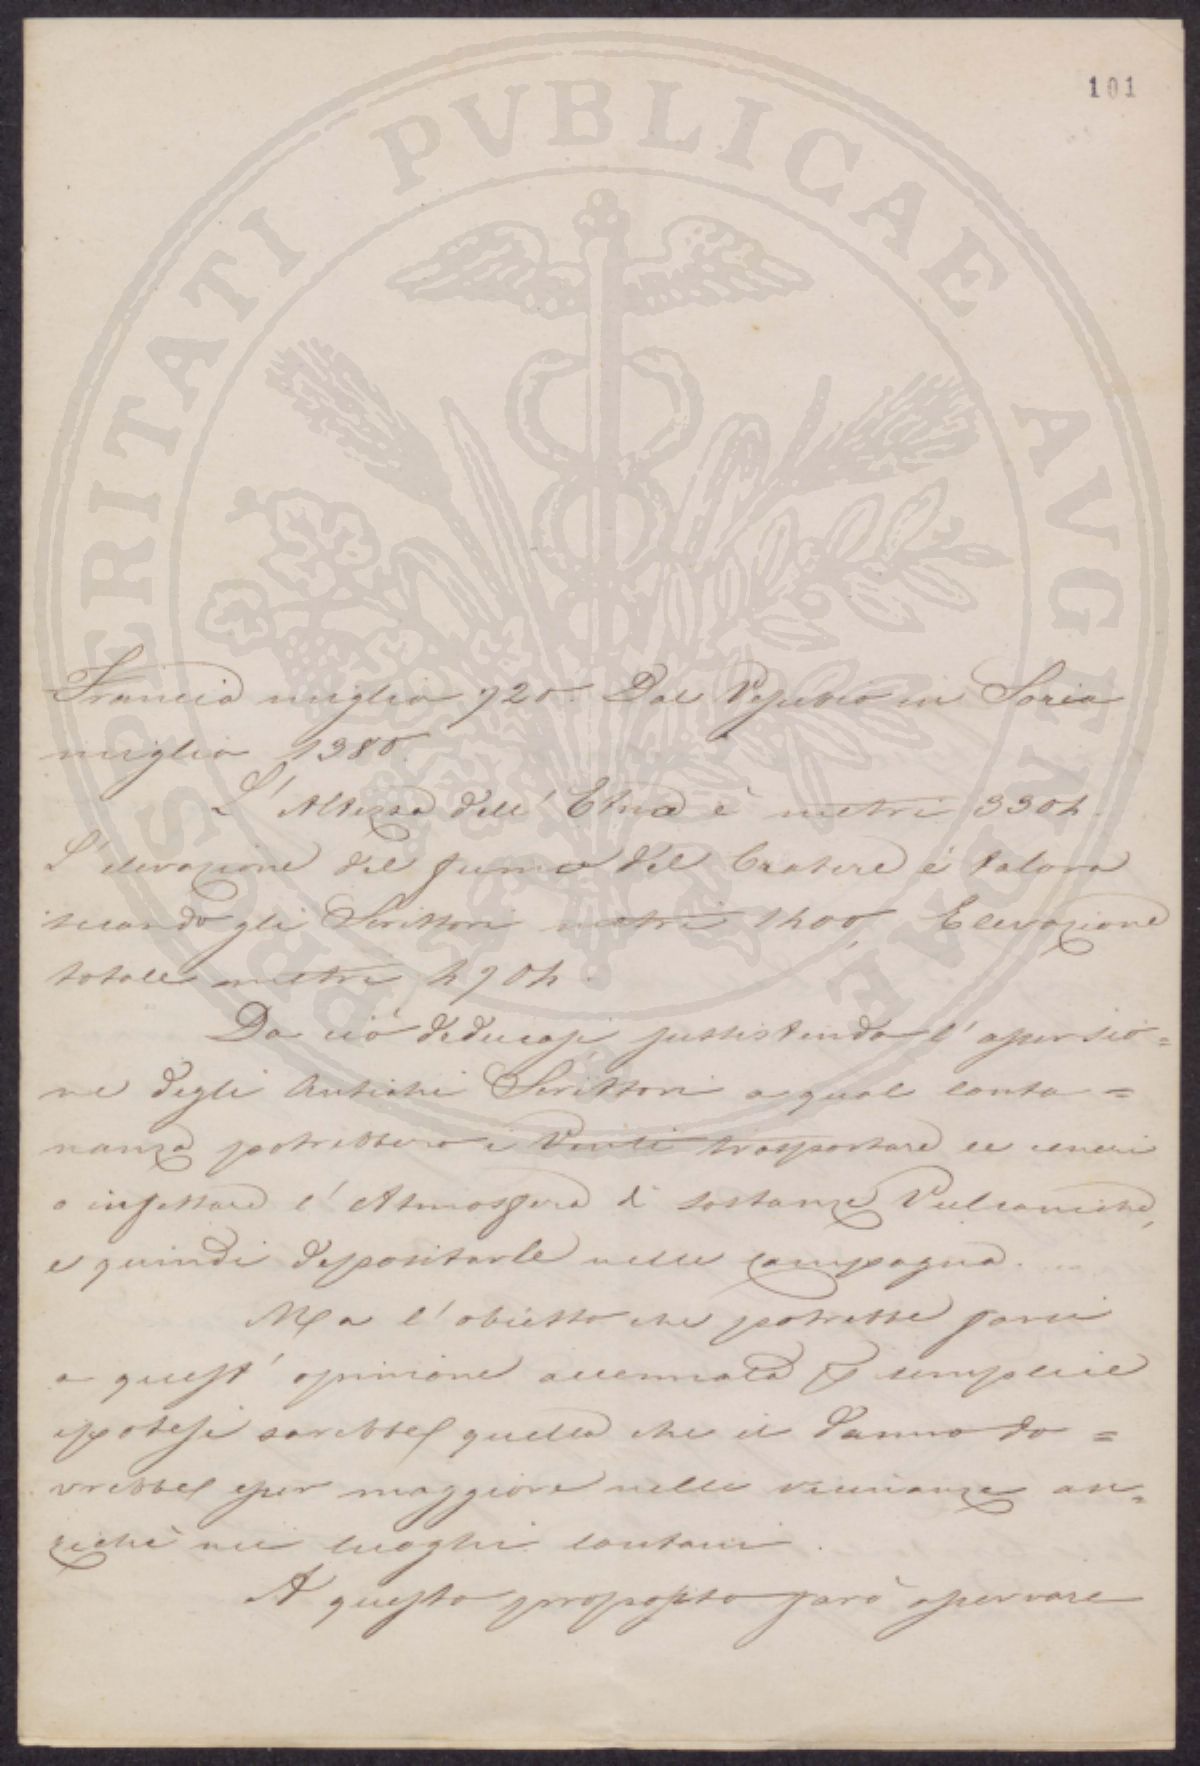 101
PROSPERITATI PVBLICAE AVGENDAE
Francia miglia 920. Dal Vesuvio in Soria
miglia 1380.
L'Altezza dell'Etna è metri 3304.
L'elevazione del fumo del Cratere è talora
secondo gli Scrittori metri 1400. Elevazione
totale metri 4704.
Da ciò deducasi sussistendo l'asserzio=
ne degli Antichi Scrittori a qual lonta=
nanza potrebbero i Venti trasportare le ceneri
o infettare l'Atmosfera di sostanze Vulcaniche,
e quindi depositarle nelle campagne.
Ma l'obietto che potrebbe farsi
a quest'opinione accennata semplice
ipotesi sarebbe quella che il danno do=
vrebbe esser maggiore nelle vicinanze an=
zichè nei luoghi lontani.
A questo proposito farò osservare